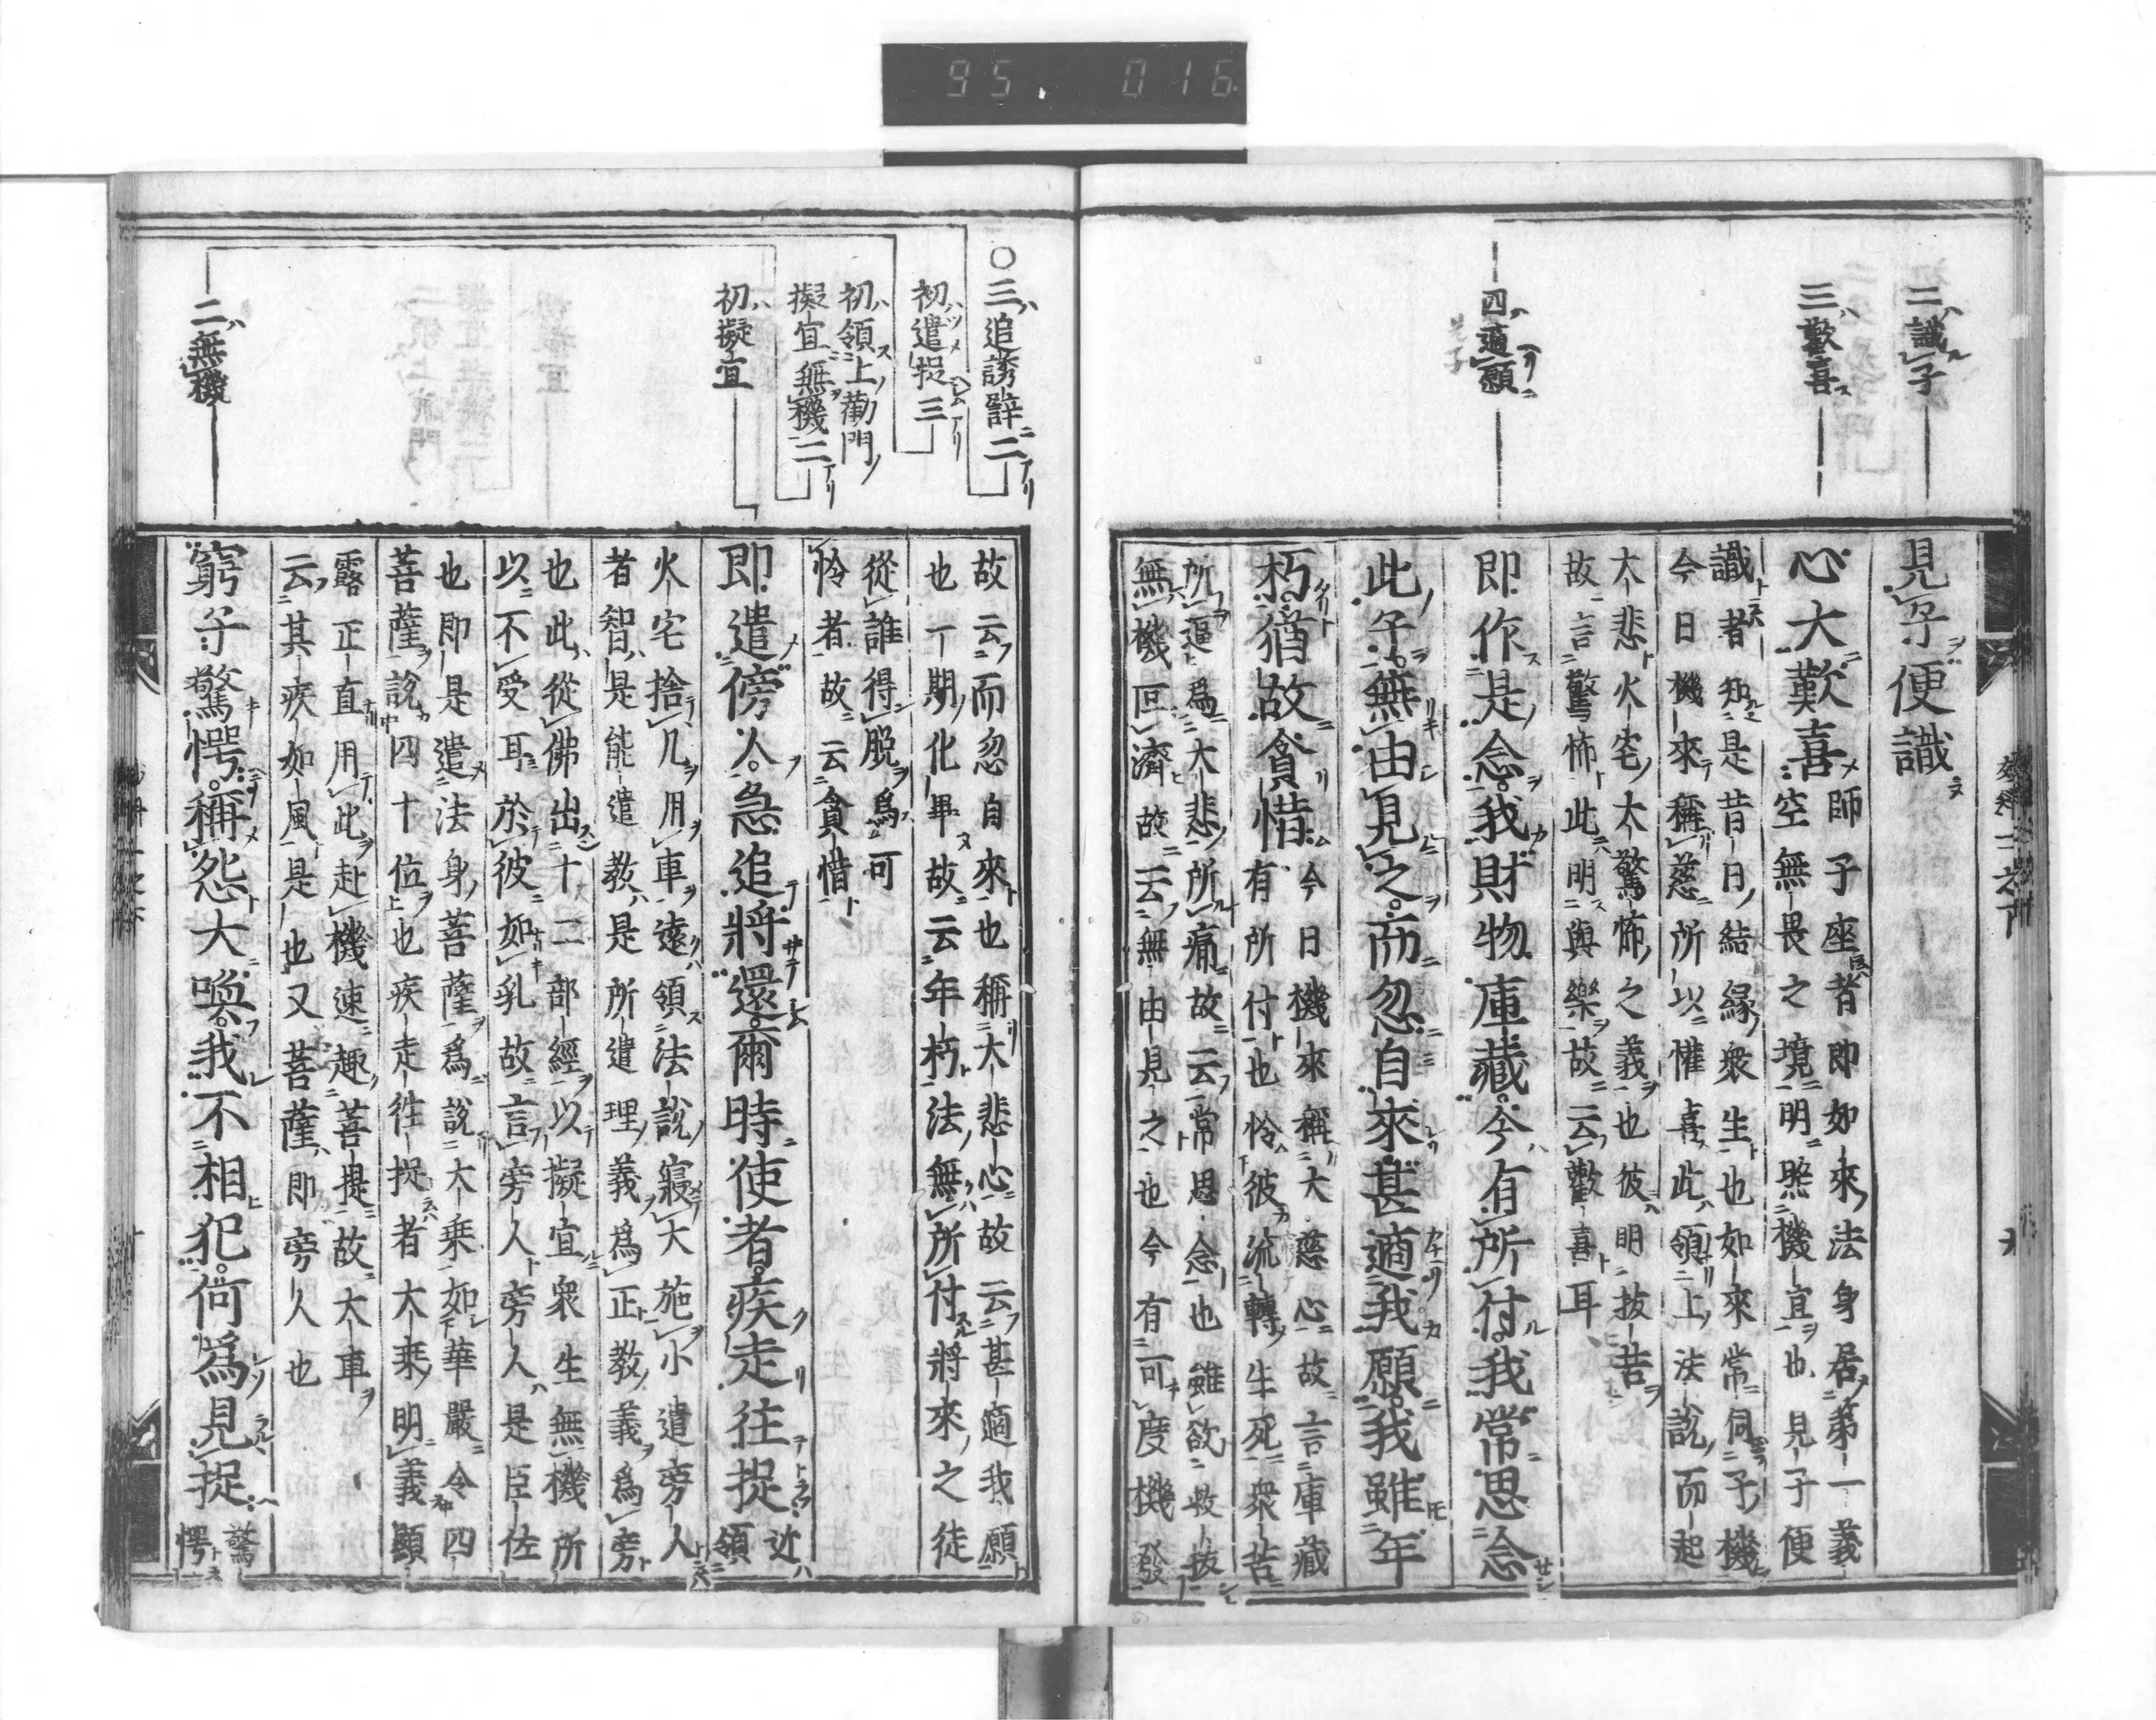 95. 016
二識子
三歡喜
四適願
見子便識
心大歡喜師子座者即如來法身居第一義
空無畏之境明照機宜也見子便
識者知是昔日結縁衆生也如來常伺子機
今日機來稱慈所以懽喜此領上法説而起
大悲火宅大驚怖之義也彼明抜苦
故言驚怖此明與樂故云歡喜耳
即作是念我財物庫藏今有所付我常思念
此子無由見之而忽自來甚適我願我雖年
朽猶故貪惜今日機來稱大慈心故言庫藏
有所付也怜彼流轉生死衆苦
所逼為大悲所痛故云常思念也雖欲救抜
無機叵濟故云無由見之也今有可度機發
○三追誘辭二
初遣捉三
初領上勸門
擬宜無機二
初擬宜
二無機
故云而忽自來也稱大悲心故云甚適我願
也一期化畢故云年朽法無所付將來之徒
從誰得脱為可
怜者故云貪惜
即遣傍人急追將還爾時使者疾走往捉近領
火宅捨几用車遠領法説寢大施小遣旁人
者智是能遣教是所遣理義為正教義為旁
也此從佛出十二部經以擬宜衆生無機所
以不受耳於彼如乳故言旁人旁人是臣佐
也即是遣法身菩薩為説大乗如華嚴令四
菩薩説四十位也疾走徃捉者大乗明義顯
露正直用此赴機速趣菩提故大車
云其疾如風是也又菩薩即旁人也
窮子驚愕稱怨大喚我不相犯何為見捉驚愕